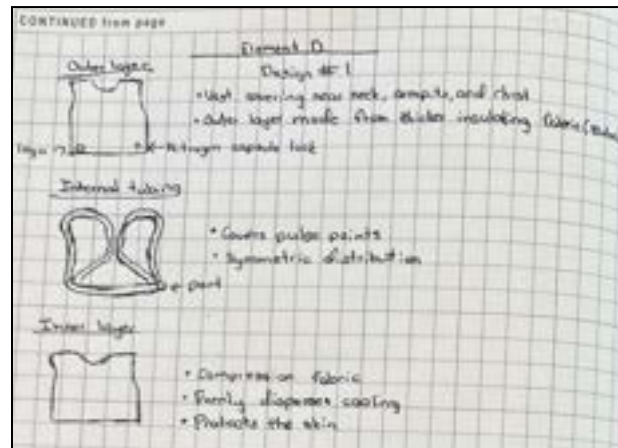 CONTINUED from page
Element D
Outer layer
Design # 1
• Vest covering near neck, armpits, and chest
• Outer layer made from thicker insulating fabric
logo
Nitrogen capsule lock
Internal tubing
• Covers pulse points
• Symmetric distribution
port
Inner layer
• Compression fabric
• Evenly disperses cooling
• Protects the skin